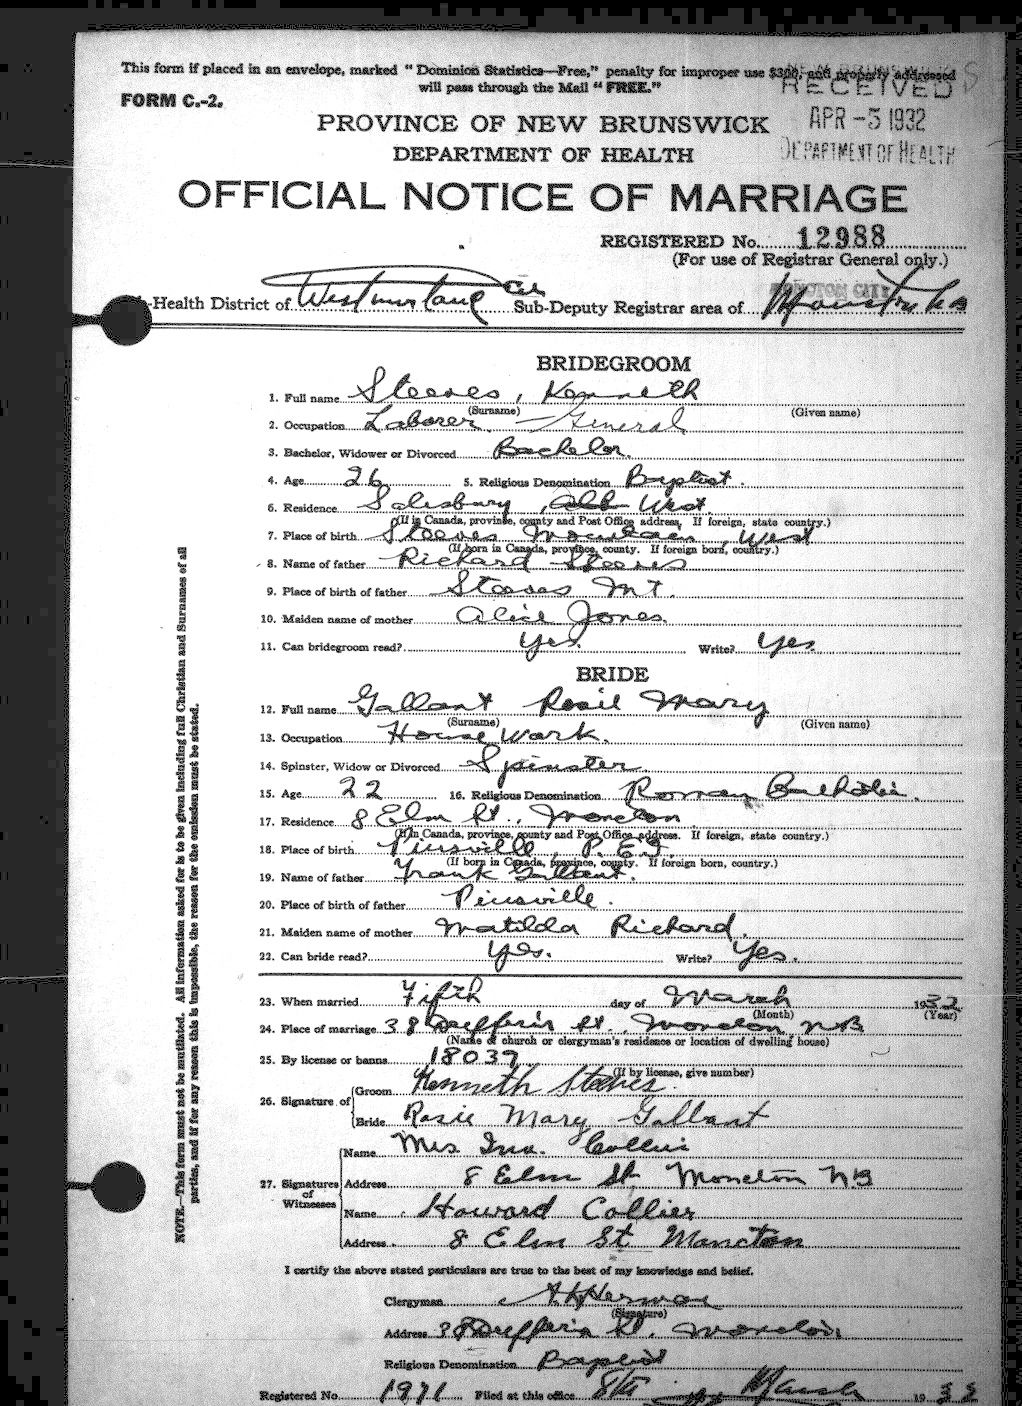 This form if placed in an envelope, marked "Dominion Statistics—Free," penalty for improper use $300, and properly addressed
will pass through the Mail "FREE."
FORM C.-2.
RECEIVED
APR -5 1932
DEPARTMENT OF HEALTH
PROVINCE OF NEW BRUNSWICK
DEPARTMENT OF HEALTH
OFFICIAL NOTICE OF MARRIAGE
REGISTERED No. 12988
(For use of Registrar General only.)
-Health District of Westmorland Co. Sub-Deputy Registrar area of
BRIDEGROOM
1. Full name Steeves, Kenneth
(Surname) (Given name)
2. Occupation Laborer General
3. Bachelor, Widower or Divorced Bachelor.
4. Age 26 5. Religious Denomination Baptist.
6. Residence Salesbury, West.
(If in Canada, province, county and Post Office address, If foreign, state country.)
7. Place of birth Steeves Mountain, West
(If born in Canada, province, county. If foreign born, country.)
8. Name of father Richard Steeves
9. Place of birth of father Steeves Mt.
10. Maiden name of mother Alice Jones.
11. Can bridegroom read? Yes. Write? Yes
BRIDE
12. Full name Gallant Rosie Mary
(Surname) (Given name)
13. Occupation House Work.
14. Spinster, Widow or Divorced Spinster
15. Age 22 16. Religious Denomination Roman Catholic.
17. Residence 8 Elm St., Moncton
(If in Canada, province, county and Post Office address. If foreign, state country.)
18. Place of birth Piusville, P.E.I.
(If born in Canada, province, county. If foreign born, country.)
19. Name of father Frank Gallant.
20. Place of birth of father Piusville.
21. Maiden name of mother Matilda Richard.
22. Can bride read? Yes. Write? Yes.
23. When married Fifth day of March 1932
(Month) (Year)
24. Place of marriage 38 Dufferin St., Moncton, NB
(Name of church or clergyman's residence or location of dwelling house)
25. By license or banns 18039
(If by license, give number)
26. Signature of
Groom Kenneth Steeves.
Bride Rosie Mary Gallant
27. Signatures of Witnesses
Name Mrs Collier
Address 8 Elm St. Moncton NB
Name Howard Collier
Address 8 Elm St Moncton
I certify the above stated particulars are true to the best of my knowledge and belief.
Clergyman
(Signature)
Address 38 Dufferin St. Moncton
Religious Denomination Baptist
Registered No. 1971 Filed at this office 8th March 19
NOTE.—This form must not be mutilated. All information asked for is to be given including full Christian and Surnames of all
parties, and if for any reason this is impossible, the reason for the omission must be stated.